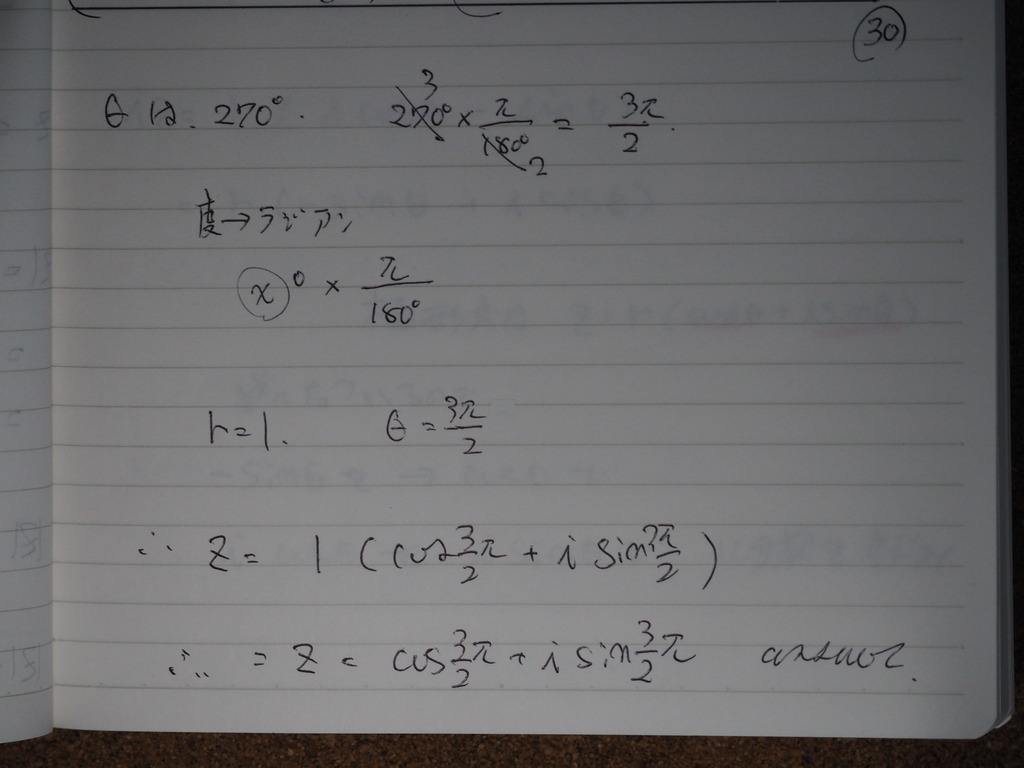 30
θは. 270°. 270° 3 × π/180° 2 = 3π/2.
度→ラジアン
x° × π/180°
r=1. θ=3π/2
∴ z = 1 (cos 3/2 π + i sin 3π/2)
∴ = z = cos 3/2 π + i sin 3/2 π answer.